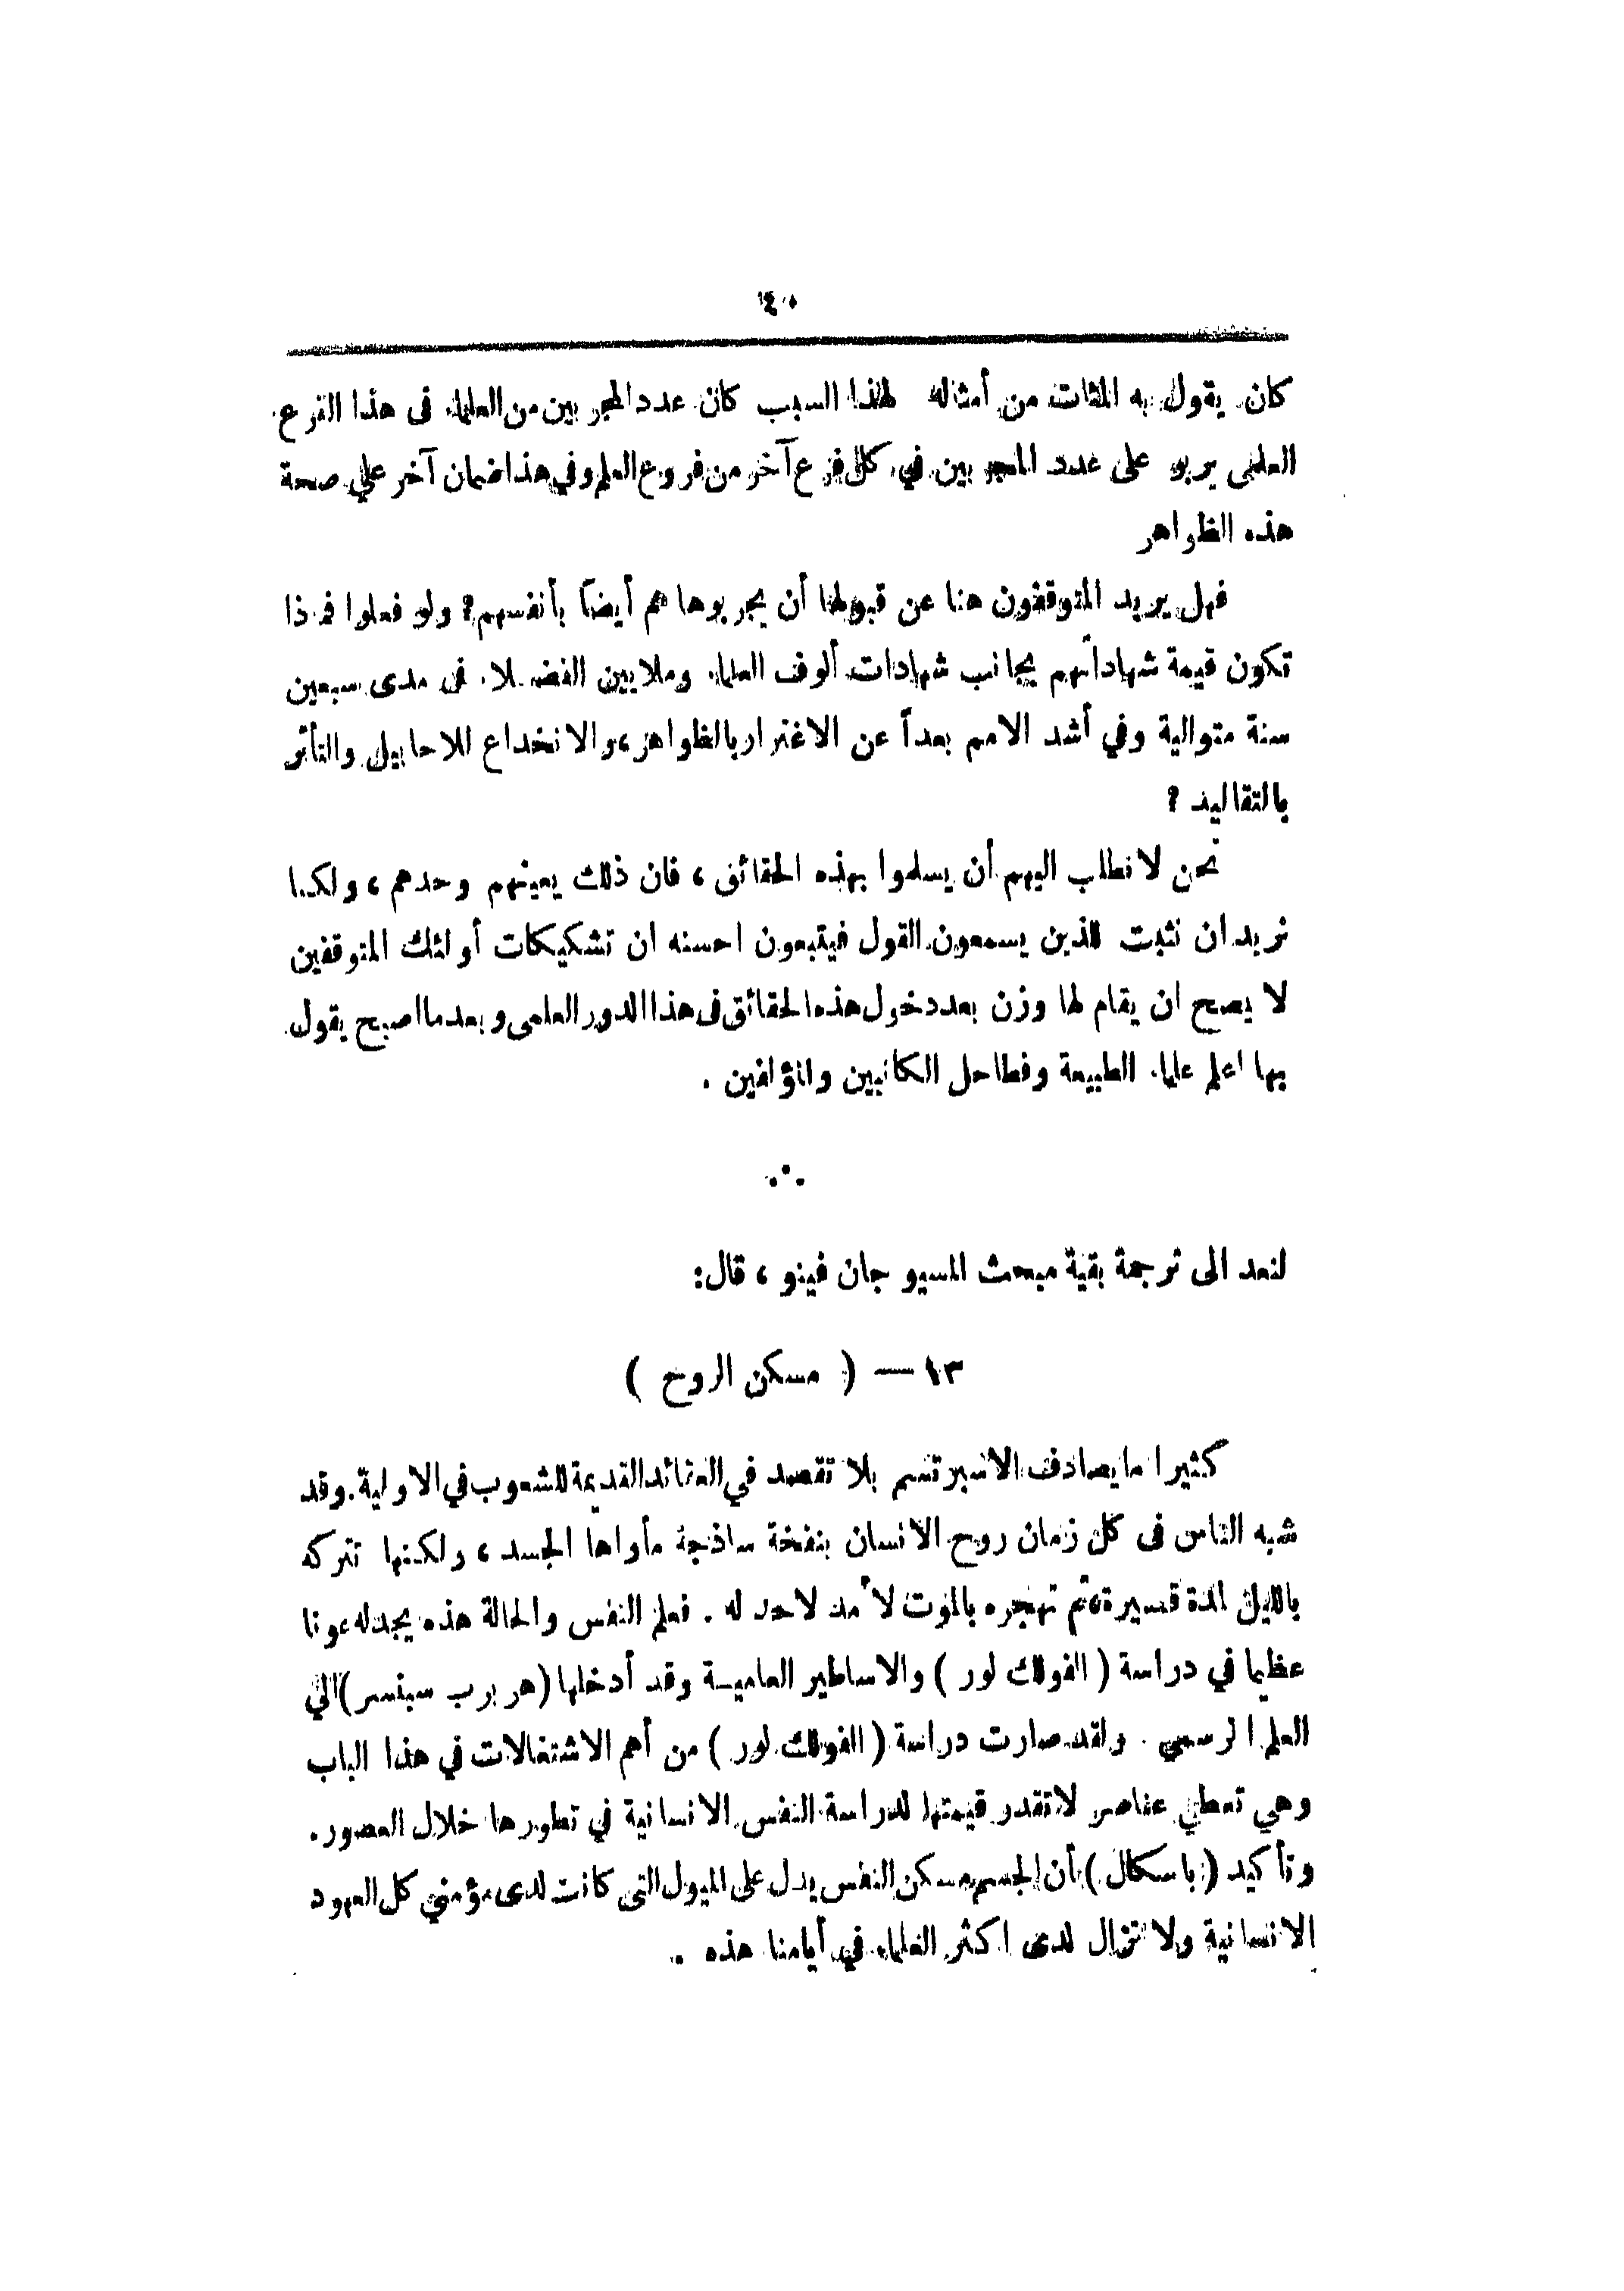 ١٤٠
كان يقول به المئات من أمثاله لهذا السبب كان عدد المجربين من العلماء فى هذا الفرع
العلمى يربو على عدد المجربين في كل فرع آخر من فروع العلم وفي هذا ضمان آخر علي صحة
هذه الظواهر
فهل يريد المتوقفون هنا عن قبولها أن يجربوها هم أيضاً بأنفسهم؟ ولو فعلوا فماذا
تكون قيمة شهاداتهم بجانب شهادات ألوف العلماء وملايين الفضلاء فى مدى سبعين
سنة متوالية وفي أشد الامم بعداً عن الاغترار بالظواهر، والانخداع للاحابيل والتأثر
بالتقاليد ؟
نحن لا نطلب اليهم أن يسلموا بهذه الحقائق ، فان ذلك يعينهم وحدهم ، ولكنا
نريد ان نثبت للذين يسمعون القول فيتبعون احسنه ان تشكيكات أولئك المتوقفين
لا يصح ان يقام لها وزن بعد دخول هذه الحقائق فى هذا الدور العلمى وبعد ما اصبح يقول
بها اعلم علماء الطبيعة وفطاحل الكاتبين والمؤلفين .
∴
لنعد الى ترجمة بقية مبحث المسيو جان فينو ، قال:
١٣ — ( مسكن الروح )
كثيرا ما يصادف الاسبرتسم بلا تقصد في العقائد القديمة للشعوب في الاولية . وقد
شبه الناس فى كل زمان روح الانسان بنفخة ساذجة مأواها الجسد ، ولكنها تتركه
بالليل لمدة قصيرة، ثم تهجره بالموت لأمد لا حد له . فعلم النفس والحالة هذه يجد له عونا
عظيما في دراسة ( الفولك لور ) والاساطير العامية وقد أدخلها (هربرب سبنسر) الي
العلم الرسمي . ولقد صارت دراسة ( الفولك لور ) من أهم الاشتغالات في هذا الباب
وهي تعطي عناصر لا تقدر قيمتها لدراسة النفس الانسانية في تطورها خلال العصور .
وتأكيد ( باسكال ) بأن الجسم مسكن النفس يدل على الميول التى كانت لدى مؤمني كل العهود
الانسانية ولا تزال لدى اكثر العلماء في أيامنا هذه .